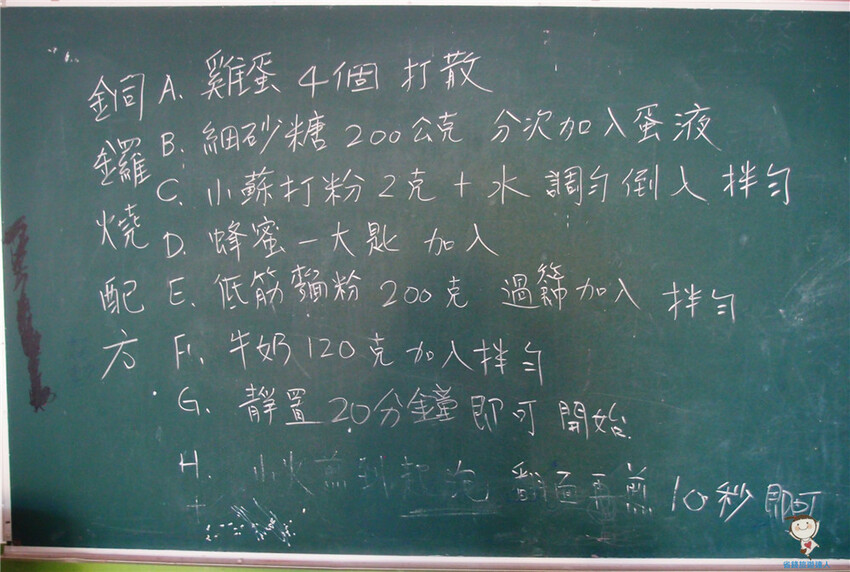 銅鑼燒配方
A. 雞蛋 4個 打散
B. 細砂糖 200公克 分次加入蛋液
C. 小蘇打粉 2克 + 水 調勻倒入 拌勻
D. 蜂蜜一大匙 加入
E. 低筋麵粉 200克 過篩加入 拌勻
F. 牛奶120克加入拌勻
G. 靜置20分鐘即可開始
H. 小火煎到起泡 翻面再煎 10秒即可